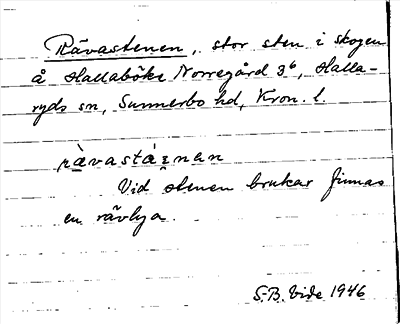 Rävastenen, stor sten i skogen
å Hallaböke Norregård 3⁶, Halla-
ryds sn, Sunnerbo hd, Kron. l.
Vid stenen brukar finnas
en rävlya.
S.B. Vide 1946